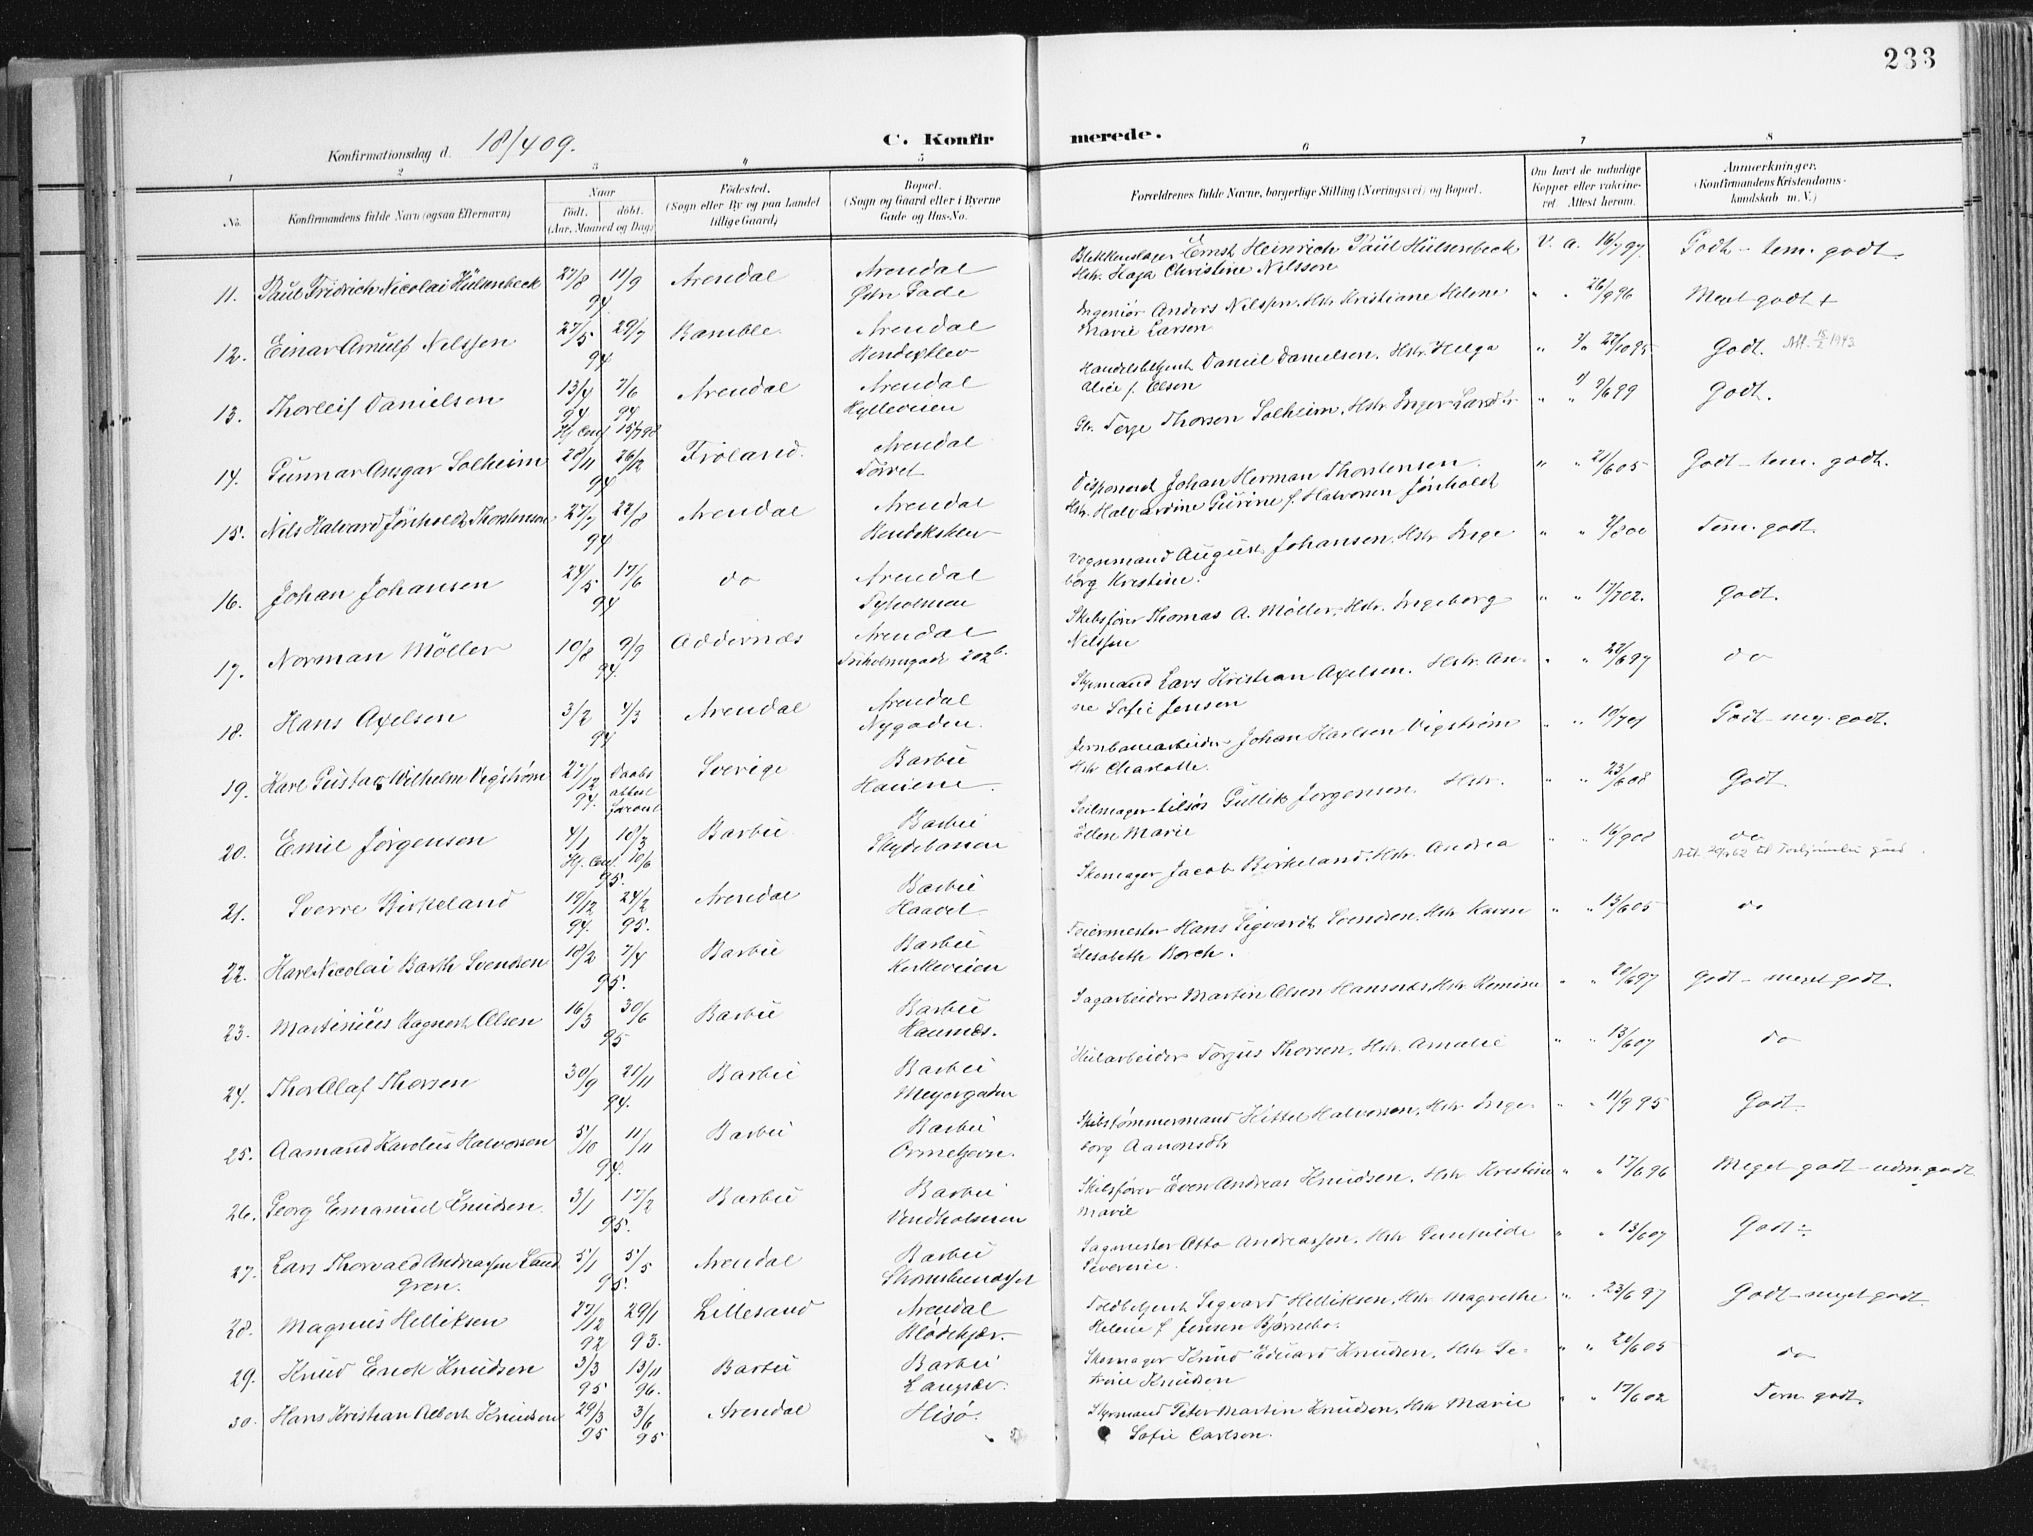 233
Konfirmationsdag d. 18/4 09.
C. Konfirmerede.
1 2 3 4 5 6 7 8
No. Konfirmandens fulde Navn (ogsaa Efternavn) Naar födt. döbt. (Aar, Maaned og Dag) Födested. (Sogn eller By og paa Landet tillige Gaard) Bopæl. (Sogn og Gaard eller i Byerne Gade og Hus-No. Forældrenes fulde Navne, borgerlige Stilling (Næringsvei) og Bopæl. Om havt de naturlige Kopper eller vakcineret Attest herom. Anmærkninger. (Konfirmandens Kristendomskundskab m. V.)
11. Paul Fridrich Nicolai Hülsenbeck 27/8 11/9 94 Arendal Arendal Østre Gade Blikkenslager Ernst Heinrich Paul Hülsenbeck Hstr. Haga Christine Nilsson V. a. 16/7 97. Godt - tem. godt.
12. Einar Arnulf Nilssen 27/5 29/7 94 Bamble. Arendal Bendiksklev Ingeniør Anders Nilssen. Hstr Kristiane Helene Marie Larsen " " 26/9 96 Meget godt +
13. Thorleif Danielsen 13/4 94 7/6 94 Hj. Conf 15/7 98 Arendal Arendal Hylleveien Handelsbetjent Daniel Danielsen. Hstr Helga Alice f. Olsen " " 27/10 95 Godt. Att. 15/2 1943
14. Gunnar Ansgar Solheim 28/11 26/12 94 Froland. Arendal Torvet Gbr. Terje Thorsen Solheim, Hstr Inger Larsdtr " " 9/6 99 Godt.
15. Nils Halvard Jonholdt Thorstensen 27/7 27/8 94 Arendal Arendal Bendiksklev Disponent Johan Herman Thorstensen Hstr. Halvardine Gurine f. Halvorsen Jonholdt " " 21/6 05 Godt - tem. godt.
16. Johan Johansen 24/5 17/6 94 do Arendal Tyholmen Vognmand August Johansen, Hstr Ingeborg Kristine. " " 7/8 00 Tem. godt.
17. Norman Möller 10/8 9/9 94. Oddernæs Arendal Tyholmsgade 202 b. Skibsfører Thomas A. Möller, Hstr. Ingeborg Nilssen " " 17/7 02. Godt.
18. Hans Axelsen 3/2 4/3 94 Arendal Arendal Nygaden. Styrmand Lars Kristian Axelsen. Hstr. Anne Sofie Jensen " " 22/6 97 do
19. Karl Gustav Wilhelm Vigström 27/12 94. Daabsattest foreval Sverige Barbu Havene. Jernbanearbeider Johan Karlsen Vigström Hstr Charlotte. " " 10/7 01 Godt - meg. godt.
20. Emil Jørgensen 4/1 18/3 Hj. Conf. 10/6 95. Barbu Barbu Skydebanen Seilmager Gullik Jørgensen. Hstr. Ellen Marie " " 23/6 08 Godt
21. Sverre Birkeland 19/12 94. 24/2 95. Arendal Barbu Haavet Skomager Jacob Birkeland. Hstr. Andrea " " 16/9 08 do
22. Karl Nicolai Barth Svendsen 18/2 7/4 95. Barbu Barbu Kirkeveien Feiermester Hans Sigvardt Svendsen. Hstr Karen Elisabeth Borch. " " 13/6 05 do
23. Martinius Ragnart Olsen 16/3 30/6 95 Barbu Barbu Kaunæs. Sagarbeider Martin Olsen Hansnæs, Hstr Romine " " 20/6 97 Godt - meget godt.
24. Thor Olaf Thorsen 30/9 21/11 94. Barbu Barbu Meyergaden Kularbeider Torjus Thorsen, Hstr. Amalie " " 13/6 07 do
25. Aamand Karolius Halvorsen 5/10 11/11 94. Barbu Barbu Ormetjern. Skibstømmermand Kittel Halvorsen, Hstr Ingeborg Aanonsdtr " " 11/9 95 Godt.
26. Georg Emanuel Knudsen. 3/1 17/2 95. Barbu Barbu Vindholmen Skibsfører Even Andreas Knudsen, Hstr Kristine Marie " " 17/6 96 Meget godt - udm. godt
27. Lars Thorvald Andreassen Landgren. 5/1 5/5 95. Arendal Barbu Thomsbundset Sagmester Otto Andreassen. Hstr Gunhilde Severine. " " 13/6 07 Godt ÷
28. Magnus Helliksen 27/12 92 29/1 93. Lillesand Arendal Blödekjær. Toldbetjent Sigvard Helliksen, Hstr Magrethe Helene f Jensen Bjørnebo. " " 23/6 97 Godt - meget godt.
29. Knud Enok Knudsen 3/3 95 13/11 96. Barbu Barbu Langsæv. Skomager Knud Eduard Knudsen, Hstr Petrine Knudsen " " 20/6 05 do
30. Hans Kristian Albert Knudsen 29/3 95 3/6 95 Arendal Hisø. Styrmand Peter Martin Knudsen, Hstr Marie Sofie Carlsen. " " 17/6 02 Tem. godt.